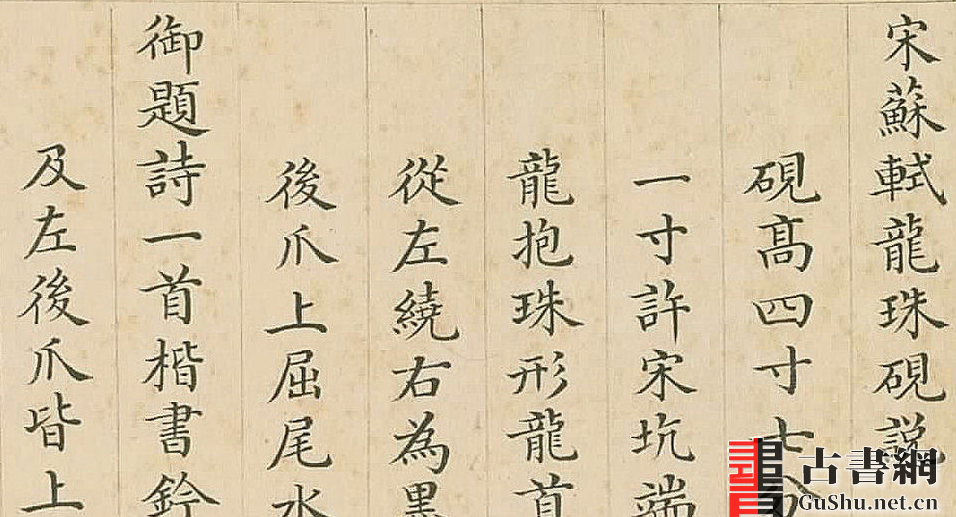 宋蘇軾龍珠硯説
硯髙四寸七分
一寸許宋坑端
龍抱珠形龍首
從左繞右為黒
後爪上屈尾水
御題詩一首楷書鈐
及左後爪皆上
古書網
GuShu.net.cn